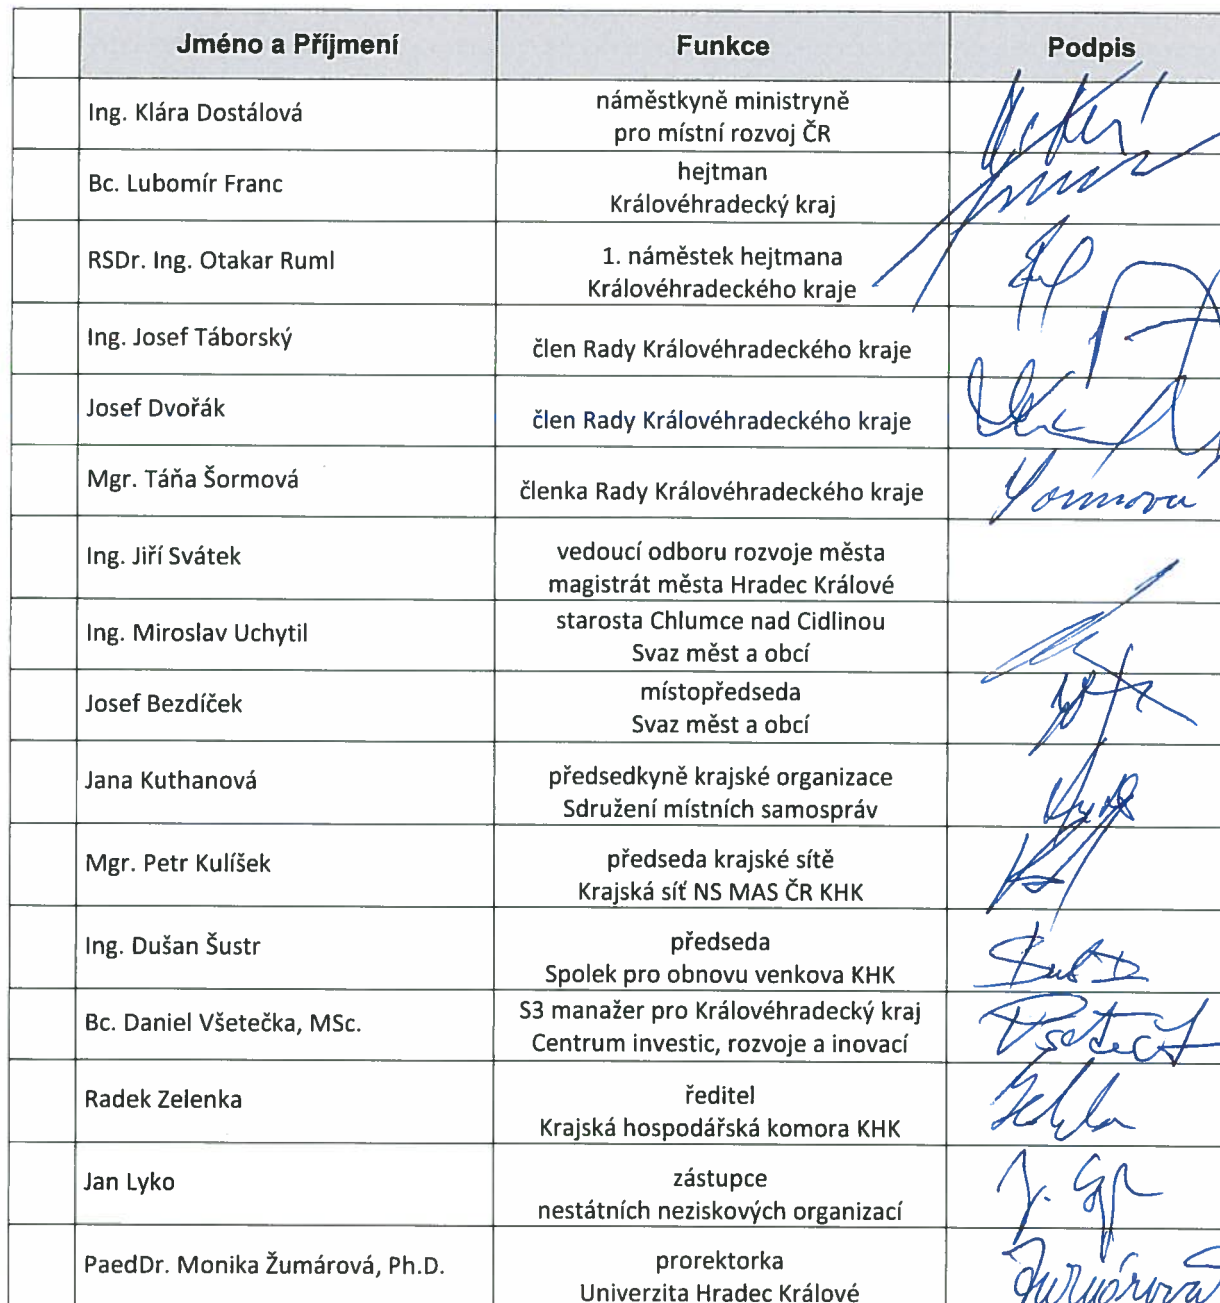 Jméno a Příjmení Funkce Podpis
Ing. Klára Dostálová náměstkyně ministryně
pro místní rozvoj ČR
Bc. Lubomír Franc hejtman
Královéhradecký kraj
RSDr. Ing. Otakar Ruml 1. náměstek hejtmana
Královéhradeckého kraje
Ing. Josef Táborský člen Rady Královéhradeckého kraje
Josef Dvořák člen Rady Královéhradeckého kraje
Mgr. Táňa Šormová členka Rady Královéhradeckého kraje Šormová
Ing. Jiří Svátek vedoucí odboru rozvoje města
magistrát města Hradec Králové
Ing. Miroslav Uchytil starosta Chlumce nad Cidlinou
Svaz měst a obcí
Josef Bezdíček místopředseda
Svaz měst a obcí
Jana Kuthanová předsedkyně krajské organizace
Sdružení místních samospráv
Mgr. Petr Kulíšek předseda krajské sítě
Krajská síť NS MAS ČR KHK
Ing. Dušan Šustr předseda
Spolek pro obnovu venkova KHK
Bc. Daniel Všetečka, MSc. S3 manažer pro Královéhradecký kraj
Centrum investic, rozvoje a inovací
Radek Zelenka ředitel
Krajská hospodářská komora KHK
Jan Lyko zástupce
nestátních neziskových organizací
PaedDr. Monika Žumárová, Ph.D. prorektorka Žumárová
Univerzita Hradec Králové